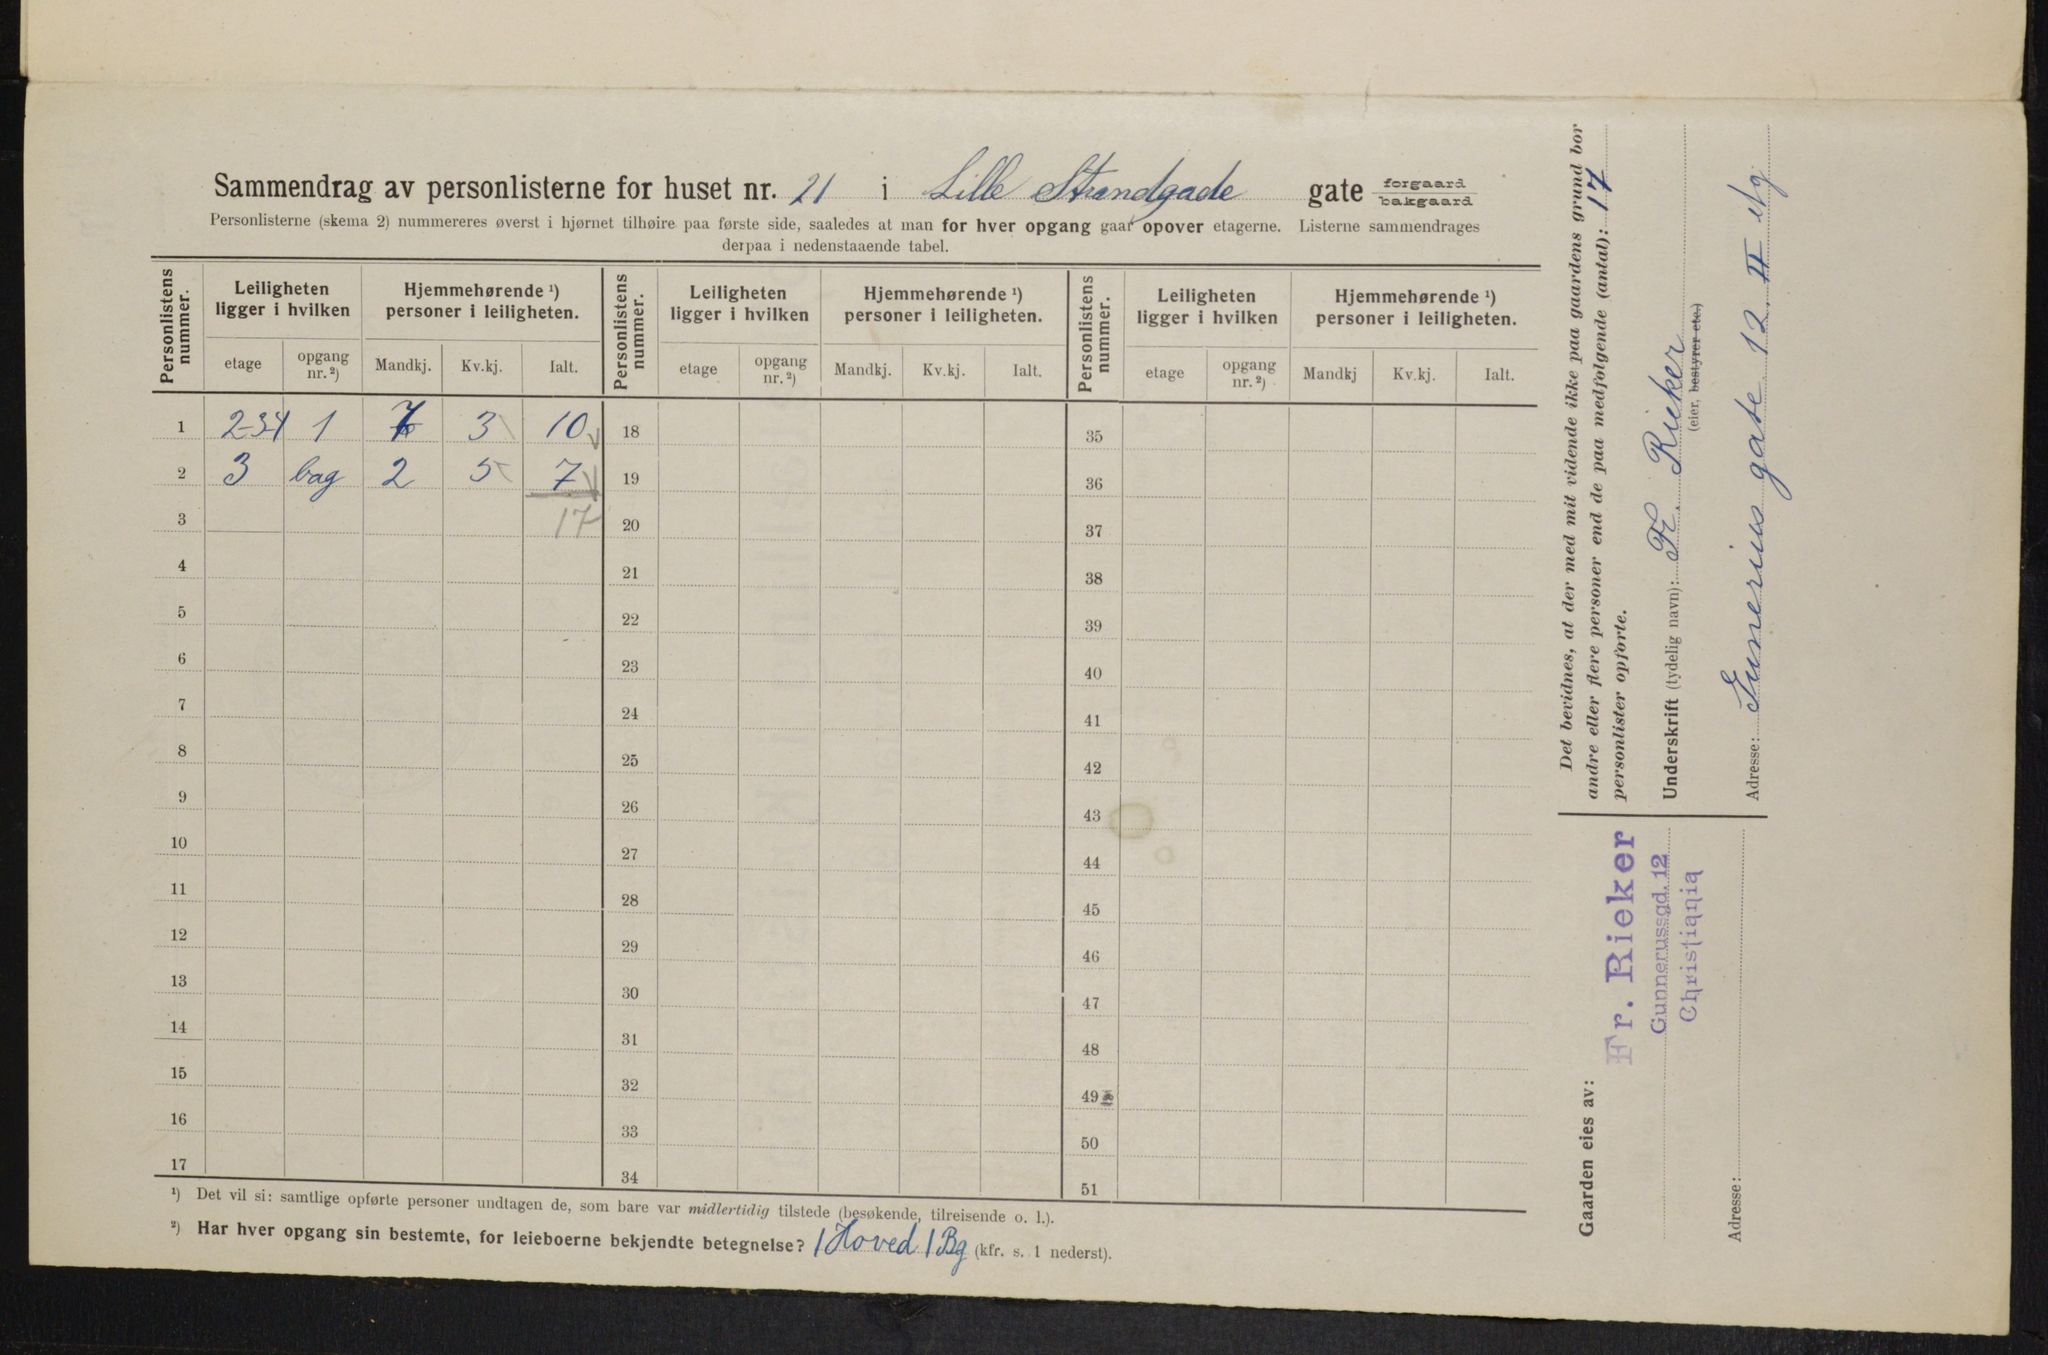 Sammendrag av personlisterne for huset nr. 21 i Lille Strandgade gate forgaard bakgaard
Personlisterne (skema 2) nummereres øverst i hjørnet tilhøire paa første side, saaledes at man for hver opgang gaar opover etagerne. Listerne sammendrages
derpaa i nedenstaaende tabel.
Personlistens nummer. Leiligheten ligger i hvilken Hjemmehørende ¹) personer i leiligheten. Personlistens nummer. Leiligheten ligger i hvilken Hjemmehørende ¹) personer i leiligheten. Personlistens nummer. Leiligheten ligger i hvilken Hjemmehørende ¹) personer i leiligheten.
etage opgang nr. ²) Mandkj. Kv.kj. Ialt. etage opgang nr. ²) Mandkj. Kv.kj. Ialt. etage opgang nr. ²) Mandkj Kv.kj. Ialt.
1 2-34 1 7 3 10 18 35
2 3 bag 2 5 7 19 36
3 17 20 37
4 21 38
5 22 39
6 23 40
7 24 41
8 25 42
9 26 43
10 27 44
11 28 45
12 29 46
13 30 47
14 31 48
15 32 49
16 33 50
17 34 51
¹) Det vil si: samtlige opførte personer undtagen de, som bare var midlertidig tilstede (besøkende, tilreisende o. l.).
²) Har hver opgang sin bestemte, for leieboerne bekjendte betegnelse? 1 Hoved 1 Bg (kfr. s. 1 nederst).
Det bevidnes, at der med mit vidende ikke paa gaardens grund bor
andre eller flere personer end de paa medfølgende (antal): 17
personlister opførte.
Underskrift (tydelig navn): Fr. Rieker
(eier, bestyrer etc.)
Adresse: Gunerius gate 12 II etg
Gaarden eies av:
Fr. Rieker
Gunnerussgd. 12
Christiania
Adresse: